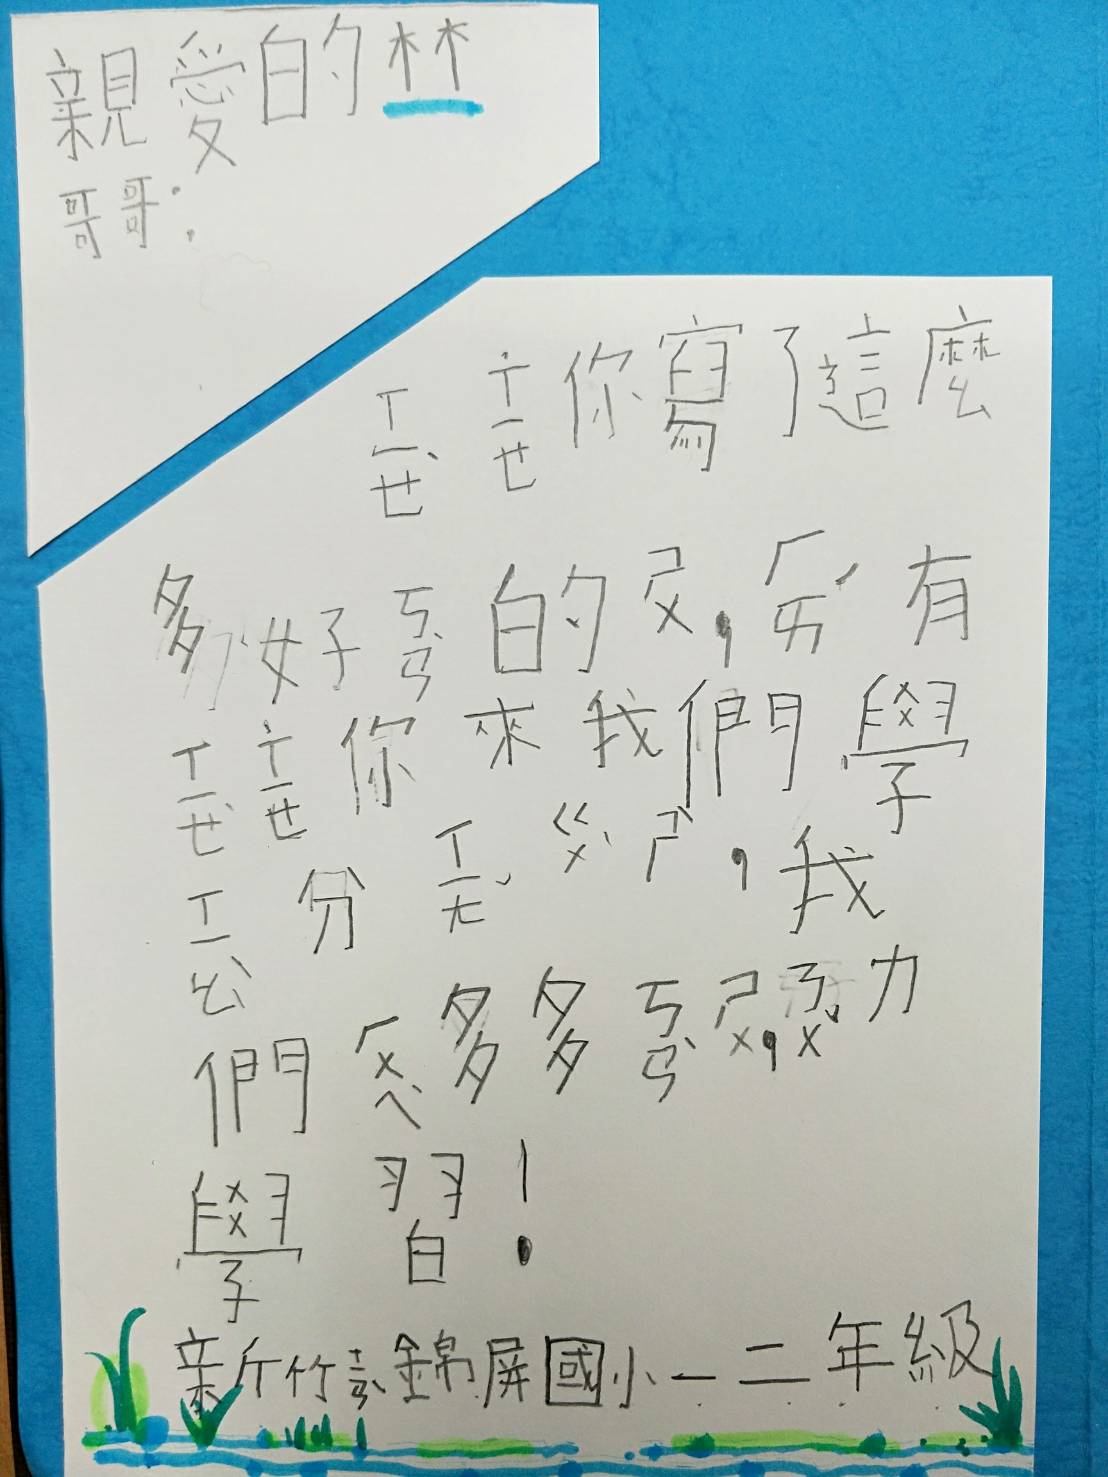 親愛的林
哥哥：
ㄒㄧㄝˋㄒㄧㄝ你寫了這麼
多好ㄎㄢˋ的ㄕㄨ，ㄏㄞˊ有
ㄒㄧㄝˋㄒㄧㄝ你來我們學
ㄒㄧㄠˋ分ㄒㄧㄤˇㄍㄨˋㄕˋ，我
們ㄏㄨㄟˋ多多ㄎㄢˋㄕㄨ，ㄋㄨˇ力
學習！
新竹ㄒㄧㄢˋ錦屏國小一二年級